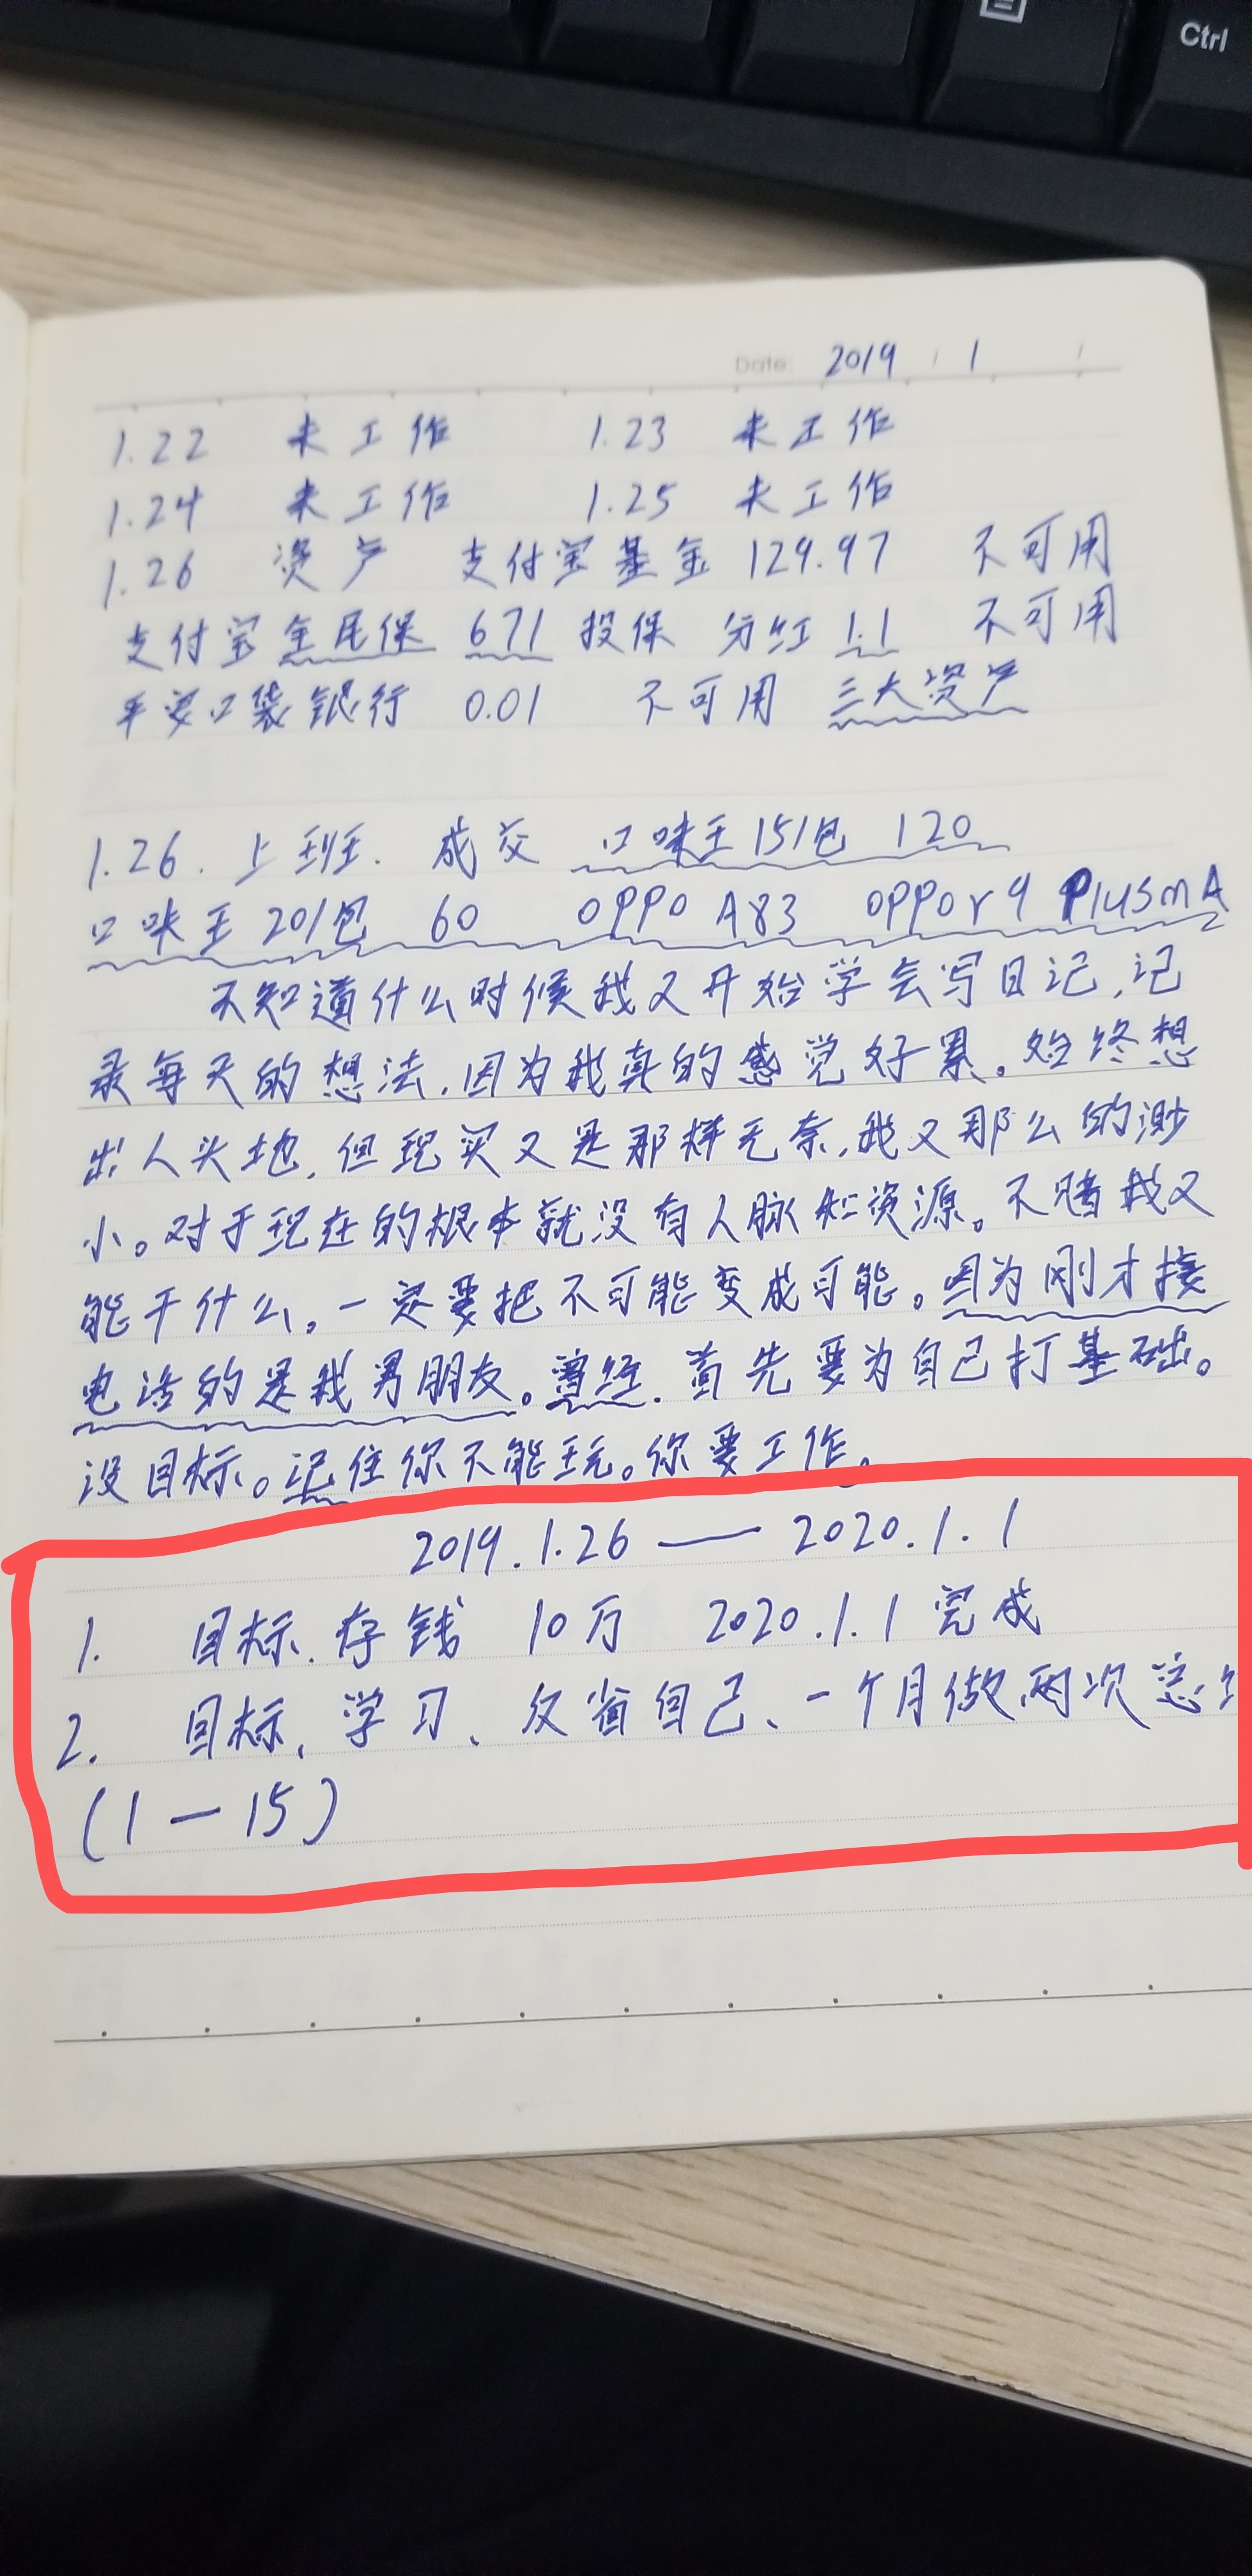 Ctrl
Date: 2019 / 1 /
1.22 未工作 1.23 未工作
1.24 未工作 1.25 未工作
1.26 资产 支付宝基金 129.97 不可用
支付宝全尾保 671 投保 分红 1.1 不可用
平安口袋银行 0.01 不可用 三大资产
1.26. 上班. 成交 口味王 151包 120
口味王 201包 60 OPPO A83 OPPOr9 PlusmA
不知道什么时候我又开始学会写日记,记
录每天的想法,因为我真的感觉好累。始终想
出人头地,但现实又是那样无奈,我又那么的渺
小。对于现在的根本就没有人脉和资源。不赌我又
能干什么。一定要把不可能变成可能。因为刚才接
电话的是我男朋友。曾经.首先要为自己打基础。
没目标。记住你不能玩。你要工作。
2019.1.26 — 2020.1.1
1. 目标.存钱 10万 2020.1.1完成
2. 目标、学习、反省自己、一个月做两次总
(1—15)